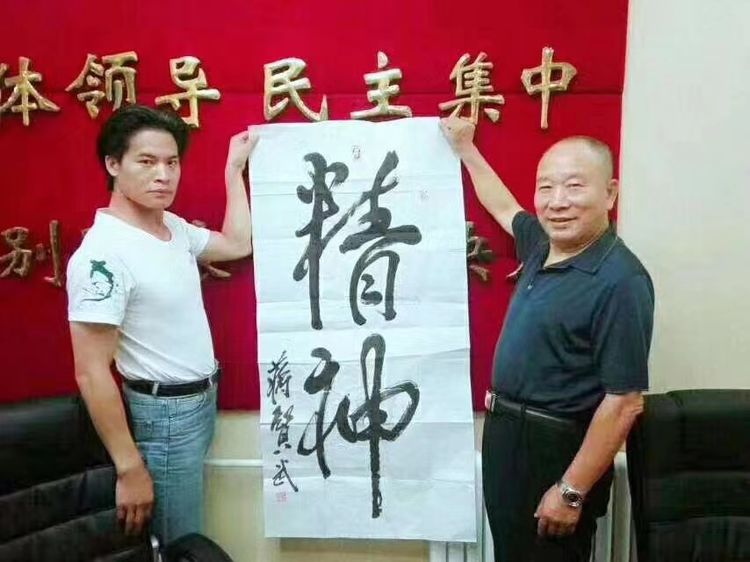 体领导 民主集中
别
精神
蒋賢武